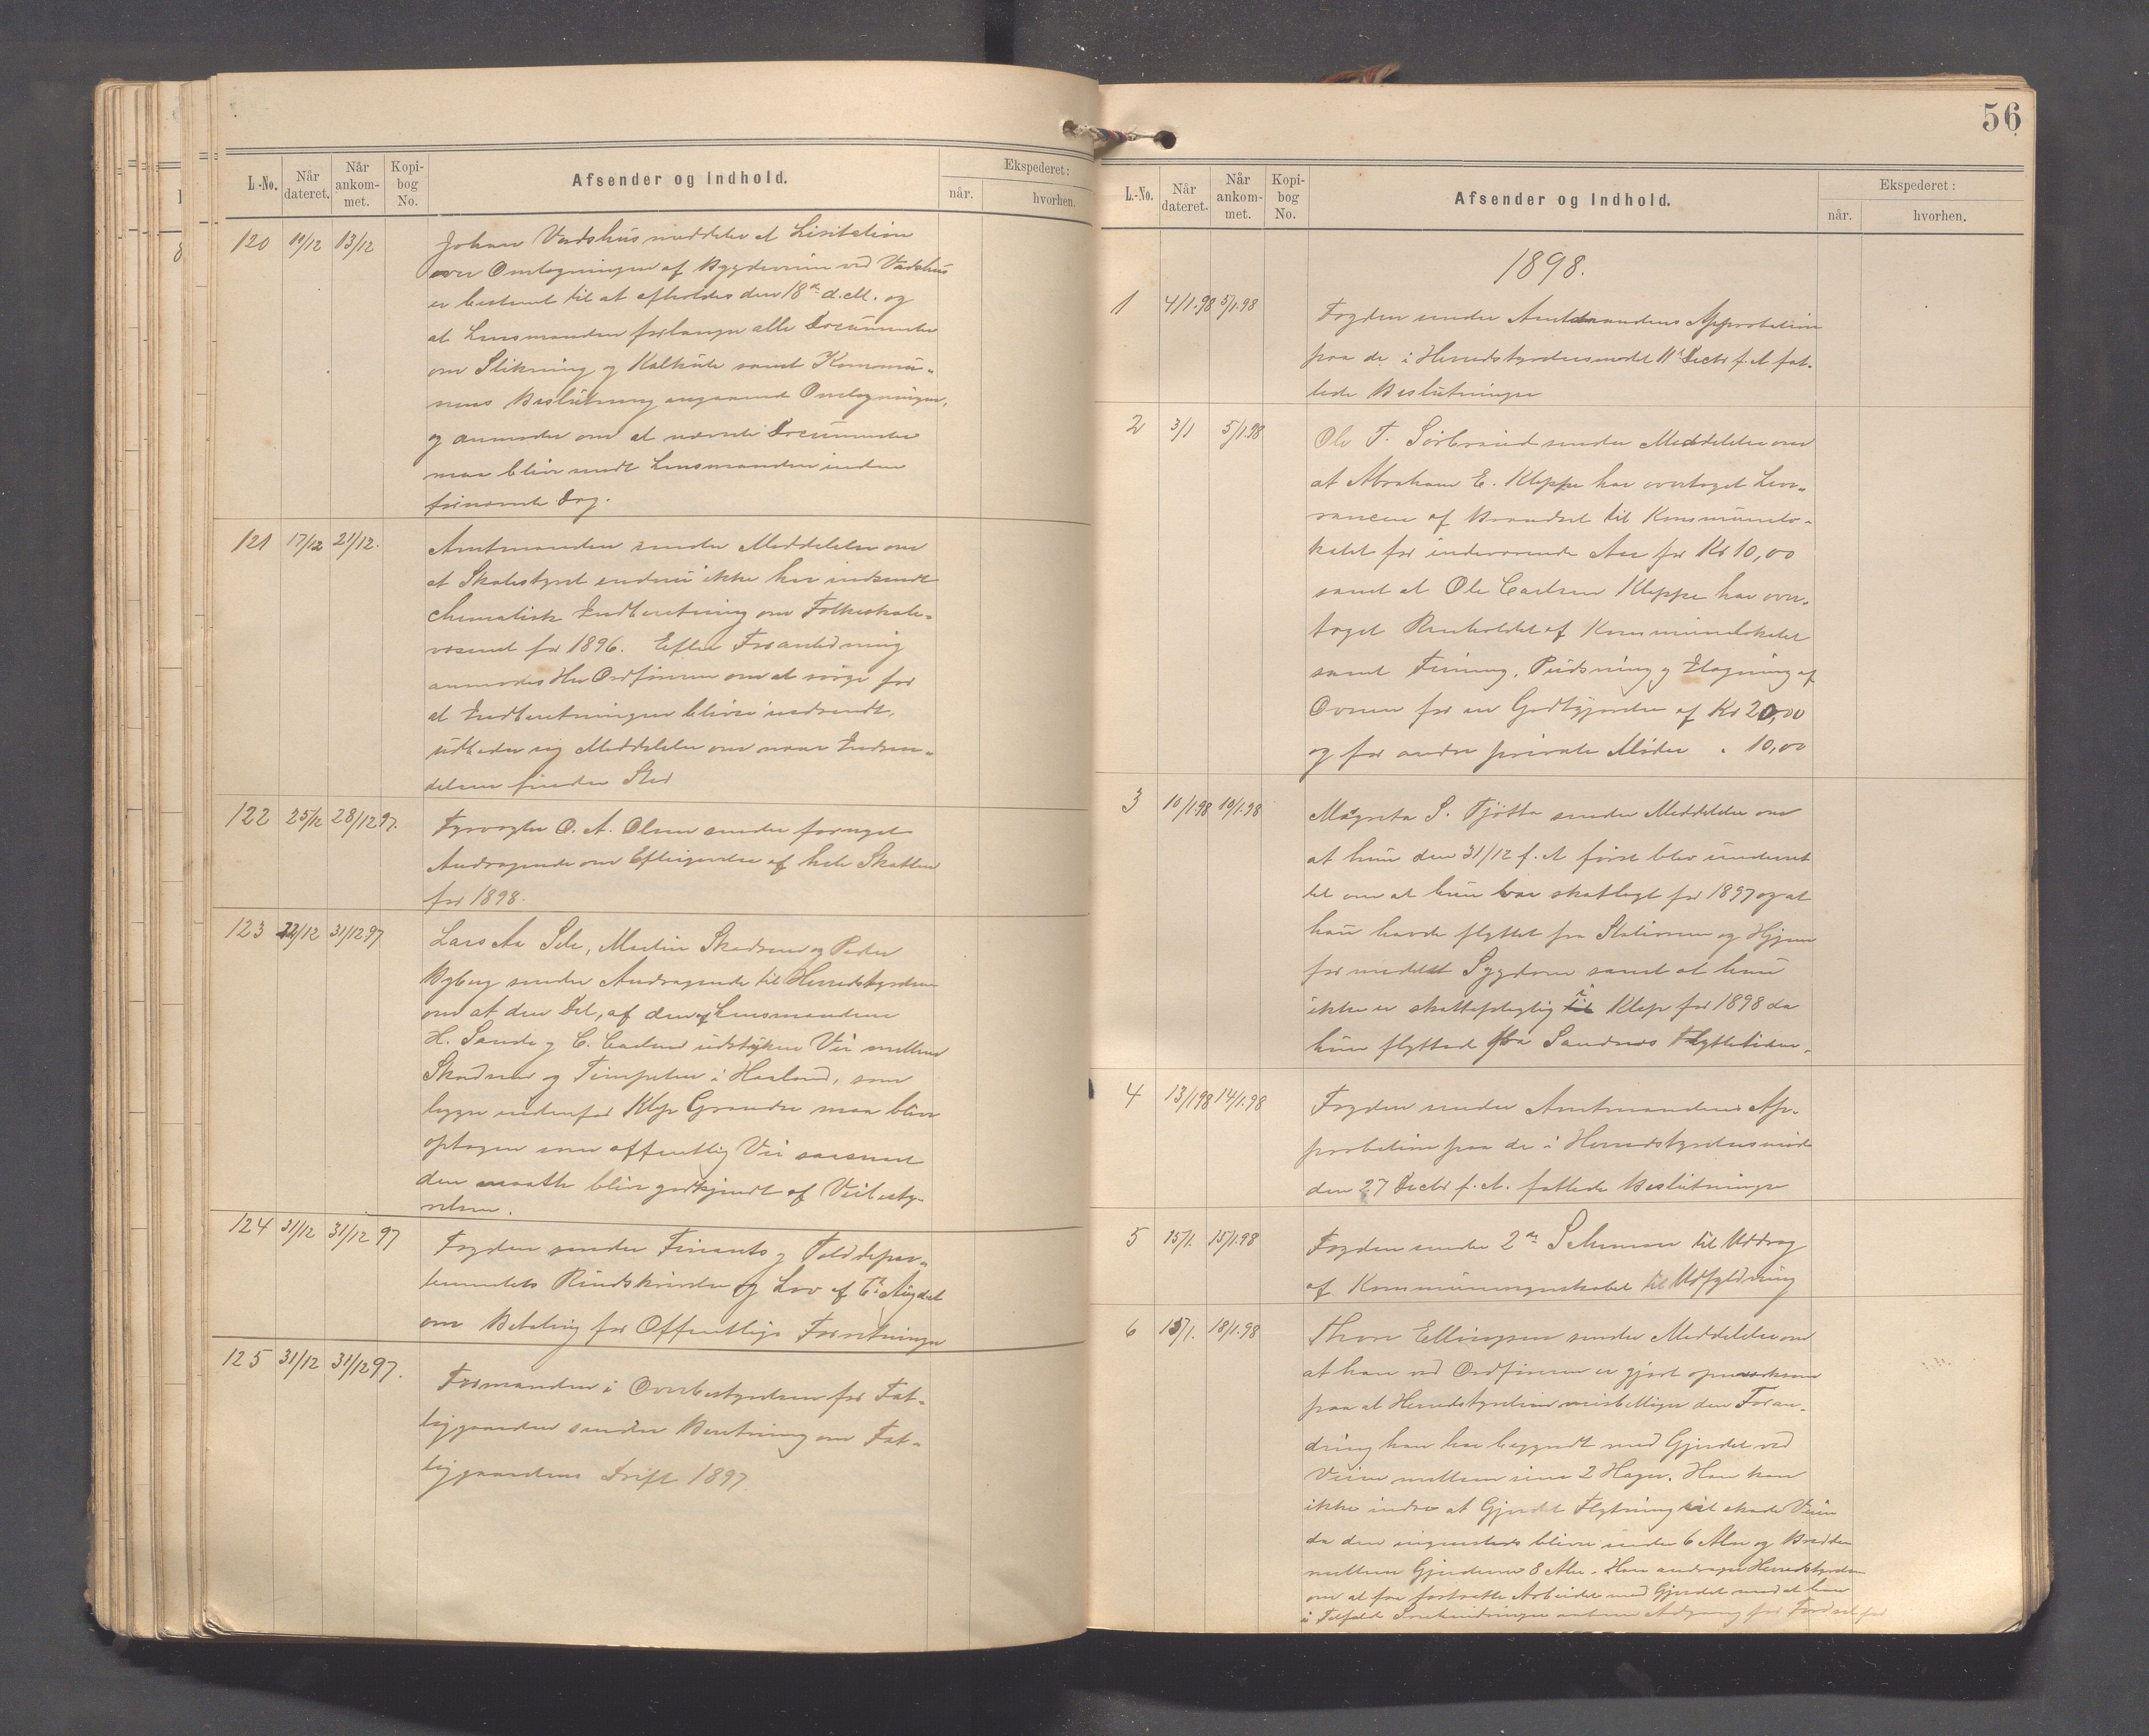 L.-No.
Når dateret.
Når ankom-met.
Kopi-bog No.
Afsender og Indhold.
Ekspederet:
når.
hvorhen.
120 10/12 13/12
Johan Vadshus meddeler at Lisitation
over Omlægningen af Bygdeveien ved Vadshus
er bestemt til at afholdes den 18de d.M. og
at Lensmanden forlanger alle Documenter
om Stikning og Kalkule samt Kommu-
nens Beslutning angaaende Omlægningen,
og anmoder om at nævnte Documenter
maa blive sendt Lensmanden inden
førnævnte Dag.
121 17/12 21/12.
Amtmanden sender Meddelelse om
at Skolestyret endnu ikke har indsendt
chematisk Indberetning om Folkeskole-
væsenet for 1896. Efter Foranledning
anmodes Hr Ordføreren om at sørge for
at Indberetningen bliver indsendt,
udbeder sig Meddelelse om naar Indsen-
delsen finder Sted
122 25/12 28/12 97.
Fyrvogter O. A. Olsen sender fornyet
Andragende om Eftergivelse af hele Skatten
for 1898.
123 22/12 31/12 97
Lars Aa Sele, Martin Skadsem og Peder
Byberg sender Andragende til Herredstyrelsen
om at den Del, af den af Lensmændene
H. Sande og C. Carlsen udstykne Vei mellem
Skadsem og Timpelen i Haaland, som
ligger indenfor Klep Grændse maa blive
optagen som offentlig Vei saasnart
den maatte blive godkjendt af Veibesty-
relsen.
124 31/12 31/12 97
Fogden sender Finants og Tolddepar-
tementets Rundskrivelse og Lov af 6te Aug. d.A
om Betaling for Offentlige Forretninger
125 31/12 31/12 97.
Formanden i Overbestyrelsen for Fat-
tiggaarden sender Beretning om Fat-
tiggaardens Drift 1897.
56
L.-No.
Når dateret.
Når ankom-met.
Kopi-bog No.
Afsender og Indhold.
Ekspederet:
når.
hvorhen.
1898.
1 4/1.98 5/1.98
Fogden sender Amtmandens Approbation
paa de i Herredstyrelsesmødet 11te Decbr f.A fat-
tede Beslutninger
2 3/1 5/1.98
Ole T. Sørbrøud sender Meddelelse om
at Abraham E. Kleppe har overtaget Leve-
rancen af Brændsel til Kommunelo-
kalet for indeværende Aar for Kr 10,00
samt at Ole Carlsen Kleppe har over-
taget Renholdet af Kommunelokalet
samt Fyring, Pudsning og Ilægning af
Ovnen for en Godtgjørelse af Kr 20,00
og for andre private Møder " 10,00
3 10/1.98 10/1.98
Magreta S. Tjøtta sender Meddelelse om
at hun den 31/12 f.A først blev underret
tet om at hun var skatlagt for 1897 og at
hun havde flyttet fra Stationen og Hjem
formedelst Sygdom samt at hun
ikke er skattepligtig i Klep for 1898 da
hun flyttede fra Sandnes Flyttetiden.
4 13/1 98 14/1.98
Fogden sender Amtmandens Ap-
probation paa de i Herredstyrelsesmøde
den 27 Decbr f.A. fattede Beslutninger
5 15/1. 15/1.98
Fogden sender 2de Schemaer til Uddrag
af Kommuneregnskabet til Udfyldning
6 15/1. 18/1.98
Thore Ellingsen sender Meddelelse om
at han ved Ordføreren er gjort opmærksom
paa at Herredstyrelsen misbilliger den Foran-
dring han har begyndt med Gjerdet ved
Veien mellem sine 2 Hager. Han kan
ikke indse at Gjerdet Flytning vil skade Veien
da den ingensteds bliver under 6 Alen og Bredden
mellem Gjerderne 8 Alen. Han andrager Herredstyrelsen
om at faa fortsætte Arbeidet med Gjerdet med at han
i Tilfælde Snehindringer Adgang for Færdsel for